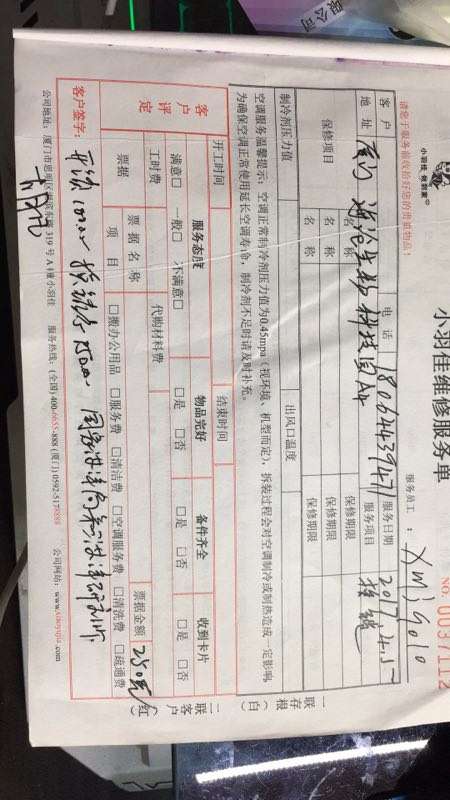 限公司
小羽佳·搬到家
小羽佳维修服务单
NO. 0037112
请您于服务前收拾好您的贵重物品!
服务员工: XMjg010
客户
电话 18064439471
服务日期 2017.4.15
地址
服务项目
保修项目
名称
保修期限
名称
保修期限
名称
保修期限
制冷剂压力值
出风口温度
空调服务温馨提示:空调正常制冷剂压力值为0.45mpa(视环境、机型而定),拆装过程会对空调制冷或制热造成一定影响
为确保空调正常使用延长空调寿命,制冷剂不足时请及时补充。
一联存根(白)
开工时间
结束时间
客户评定
服务态度
物品完好
备件齐全
收到卡片
满意□ 一般□ 不满意□
□是 □否
□是 □否
□是 □否
工时费
代购材料费
票据金额 250元
票据
票据名称
项目
□搬办公用品 □服务费 □清洁费 □空调服务费 □清洗费 □疏通费
二联客户(红)
客户签字:
公司地址:厦门市思明区湖滨东路319号A幢小羽佳 服务热线:(全国)400-6655-888 (厦门)0592-5178888 公司网站:www.xiaoyujia.com